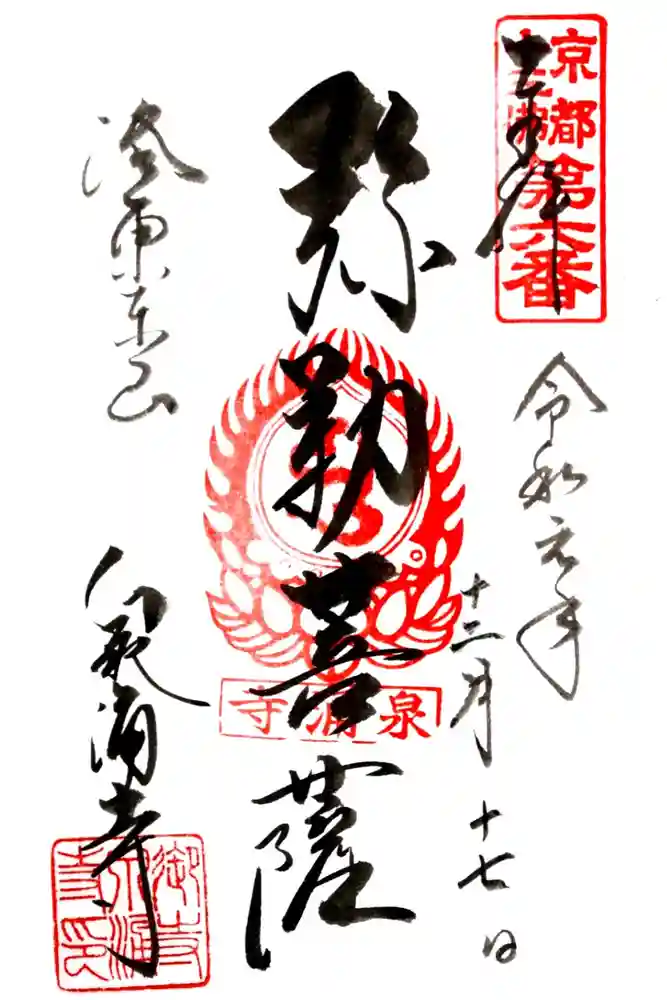 京都
十三佛
第六番
奉拝
令和元年
十二月十七日
弥勒菩薩
泉涌寺
洛東東山
泉涌寺
御寺
泉涌
寺印